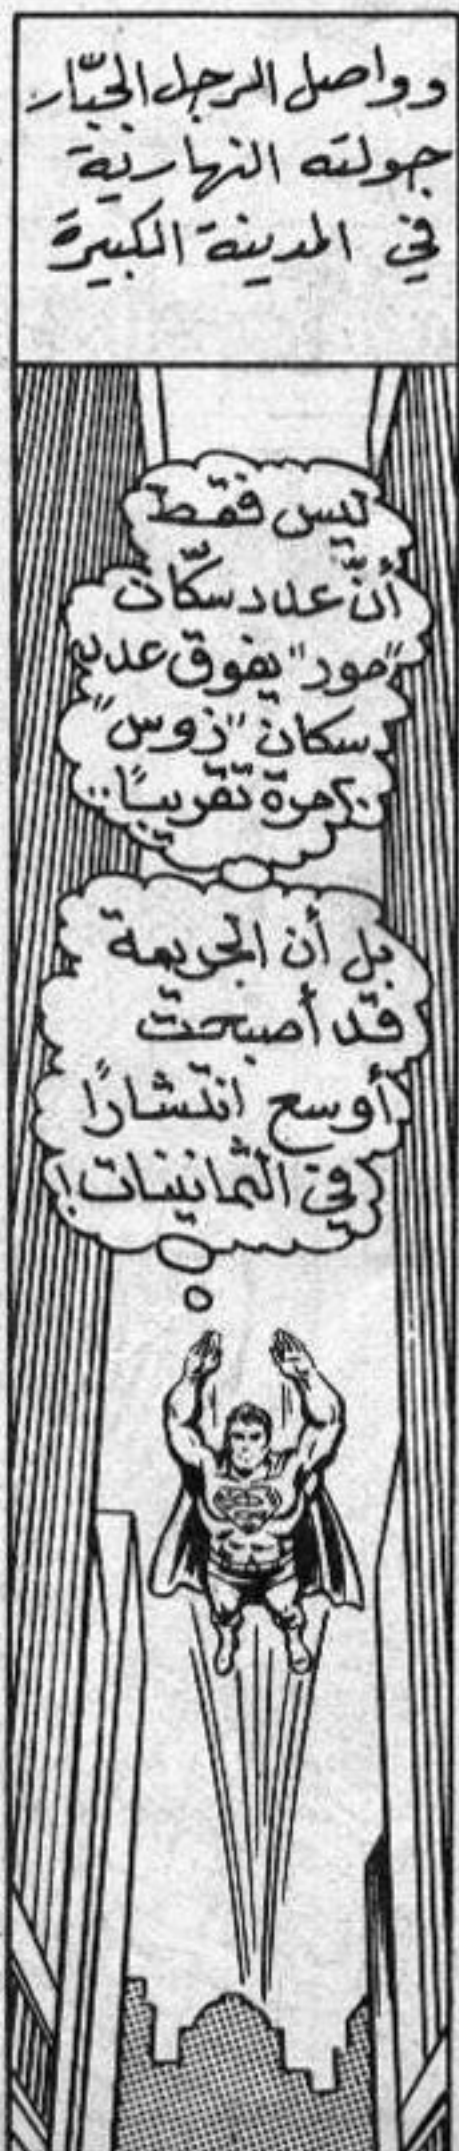 وواصل الرجل الجبّار
جولته النهاريّة
في المدينة الكبيرة
ليس فقط
أنّ عدد سكّان
"مور" يفوق عدد
سكان "زوس"
مرّة تقريبًا..
بل أن الجريمة
قد أصبحت
أوسع انتشارًا
في الثمانينات!